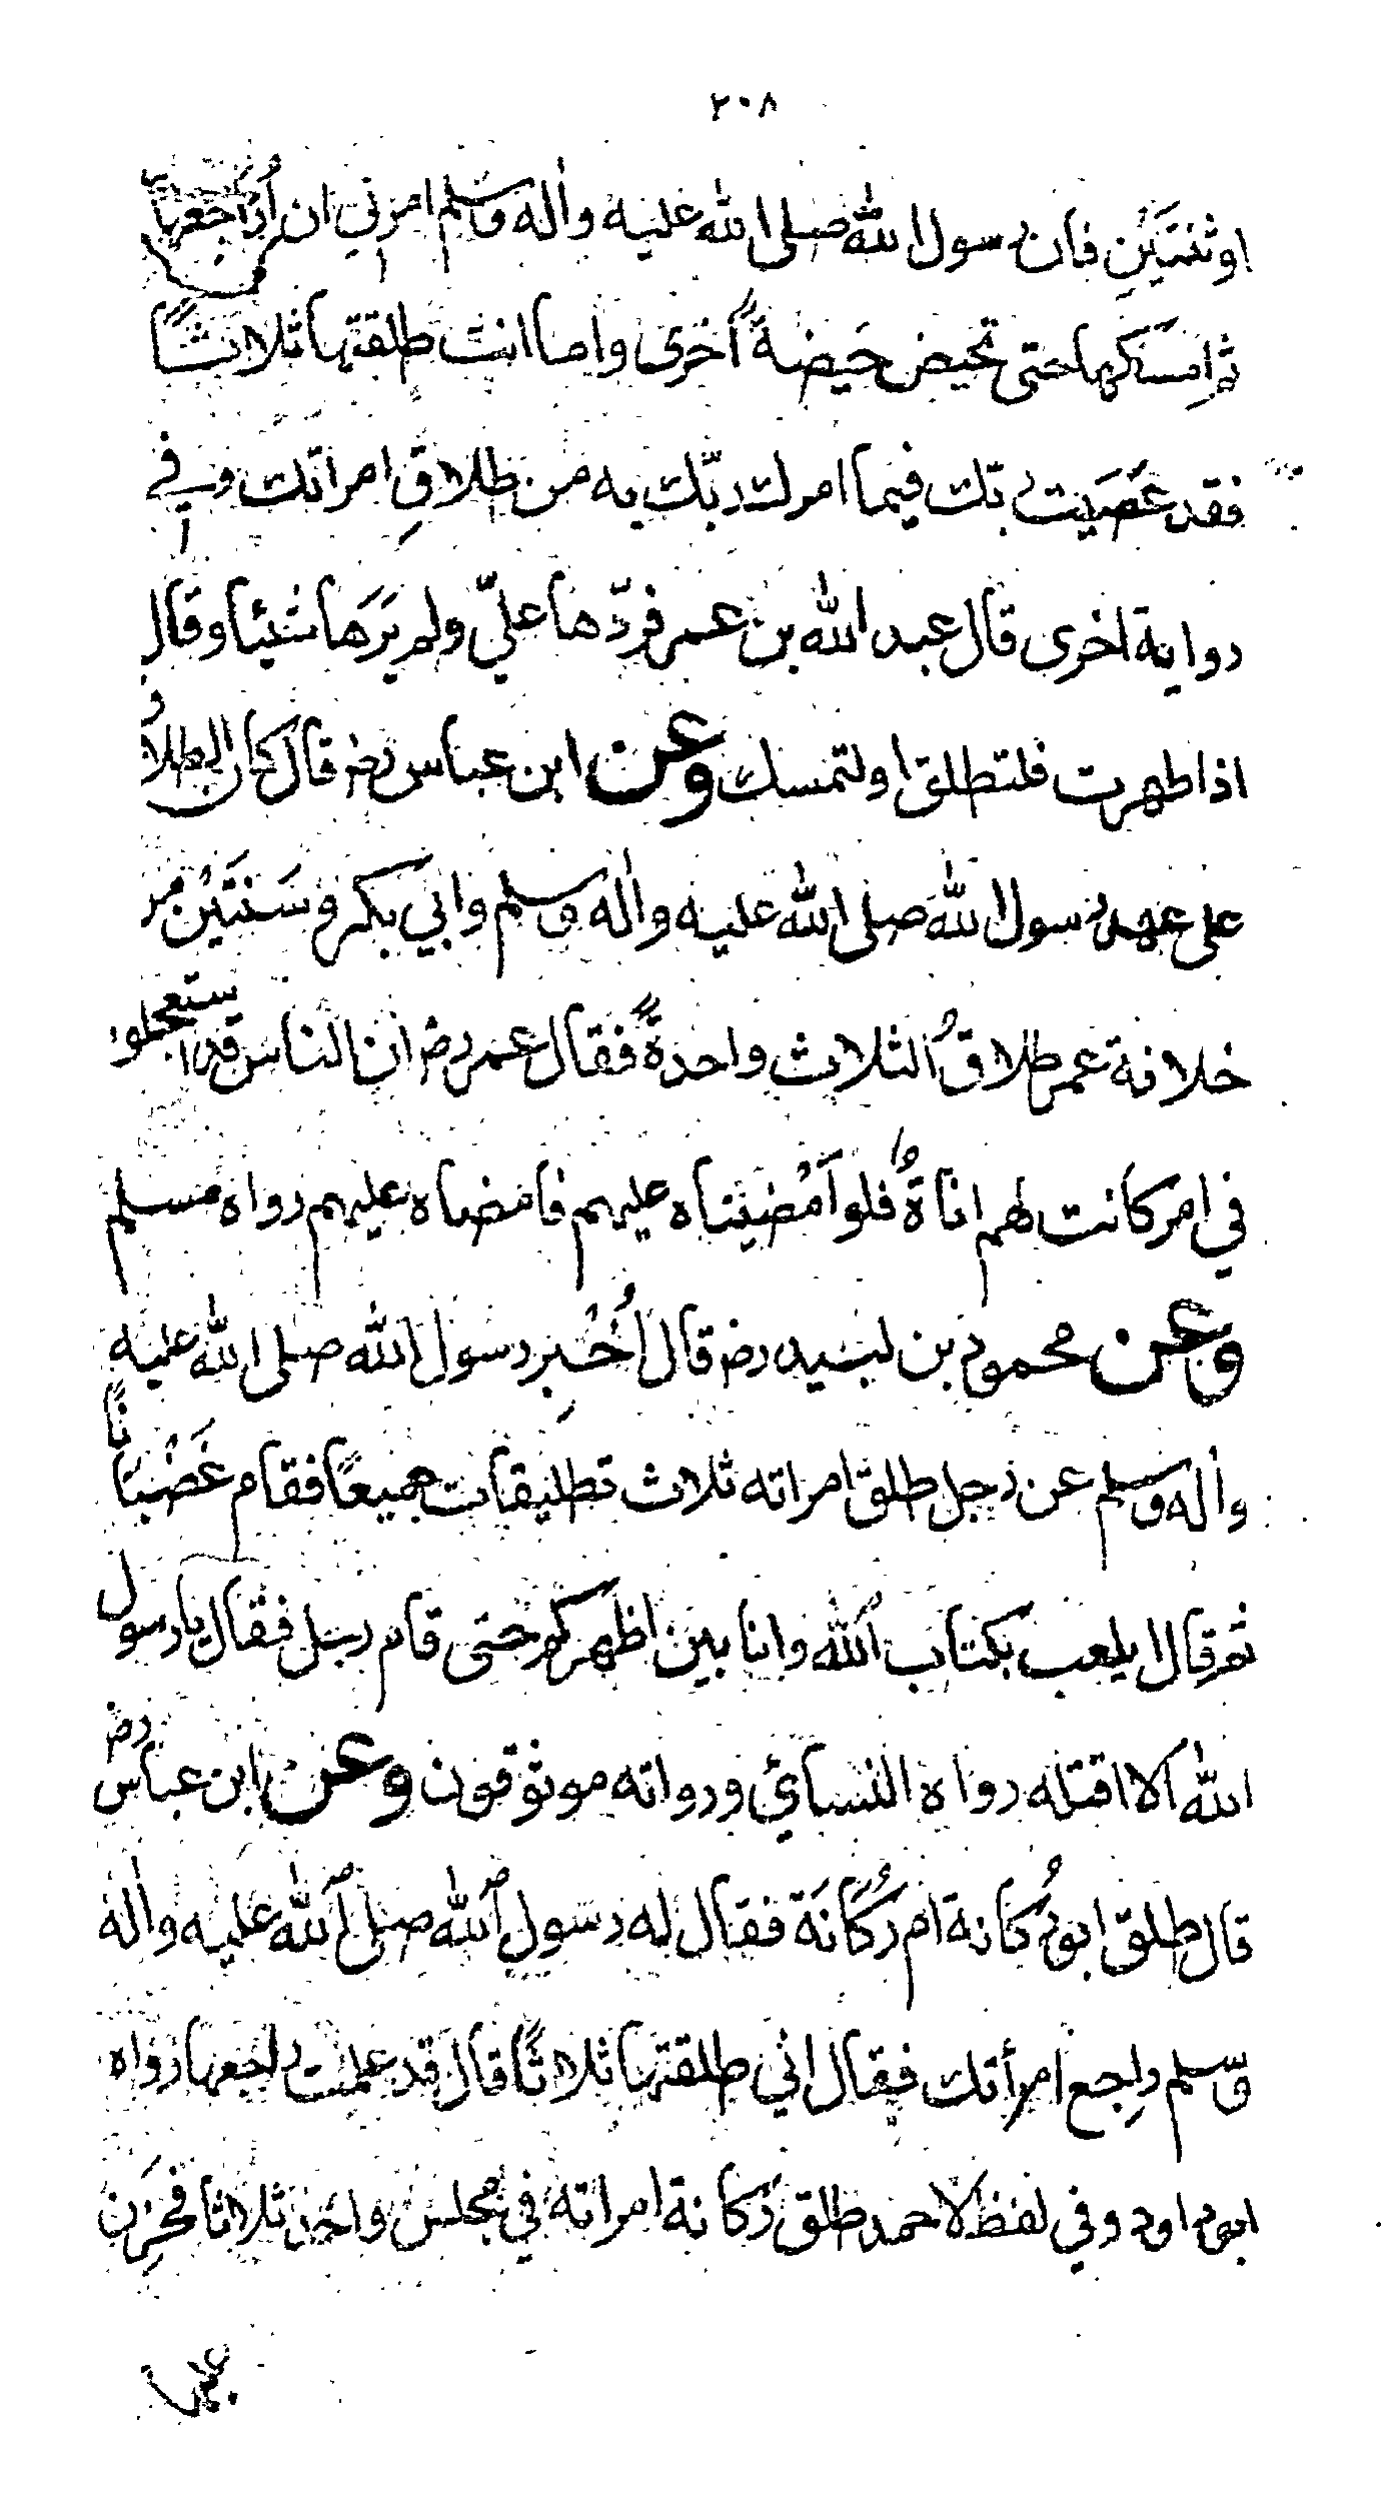 ٢٠٨
او ثنتَيْنِ فان رسول الله صلى الله عليه واٰله وسلم امرني ان اُرَاجعها
ثم اُمسكها حتى تحيض حَيضةً اُخرى واما انت طلقتها ثلاثًا
فقد عَصَيت ربك فيما امرك ربّك به من طلاقِ امراتك وفي
رواية اخرى قال عبد الله بن عمر فردّها عليّ ولم يَرَها شيئا وقال
اذا طهرت فلتطلق او لتمسك وعن ابن عباس رضـ قال كان الطلاقُ
على عهد رسول الله صلى الله عليه واٰله وسلم وابي بكر و سَنَتَيْنِ من
خلافة عمر طلاقُ الثلاث واحدةً فقال عمر رضـ ان الناس قد استعجلوا
في امر كانت لهم اناةٌ فلو اَمْضَيْناه عليهم فامضاه عليهم رواه مسلم
وعن محمود بن لبيد رضـ قال اُخْبِر رسول الله صلى الله عليه
واٰله وسلم عن رجل طلق امراته ثلاث تطليقات جميعًا فقام غَضْبَانًا
ثم قال ايلعب بكتاب الله وانا بين اظهركم حتى قام رجل فقال يا رسول
الله الا اقتله رواه النسائي ورواته موثوقون وعن ابن عباس رضـ
قال طلق ابو رُكانة ام رُكَانَة فقال له رسول الله صلى الله عليه واٰله
وسلم راجع امرأتك فقال اني طلقتها ثلاثًا قال قد علمت راجعها رواه
ابو داود وفي لفظ لاحمد طلق رُكانة امراته في مجلس واحد ثلاثا فحَزِن